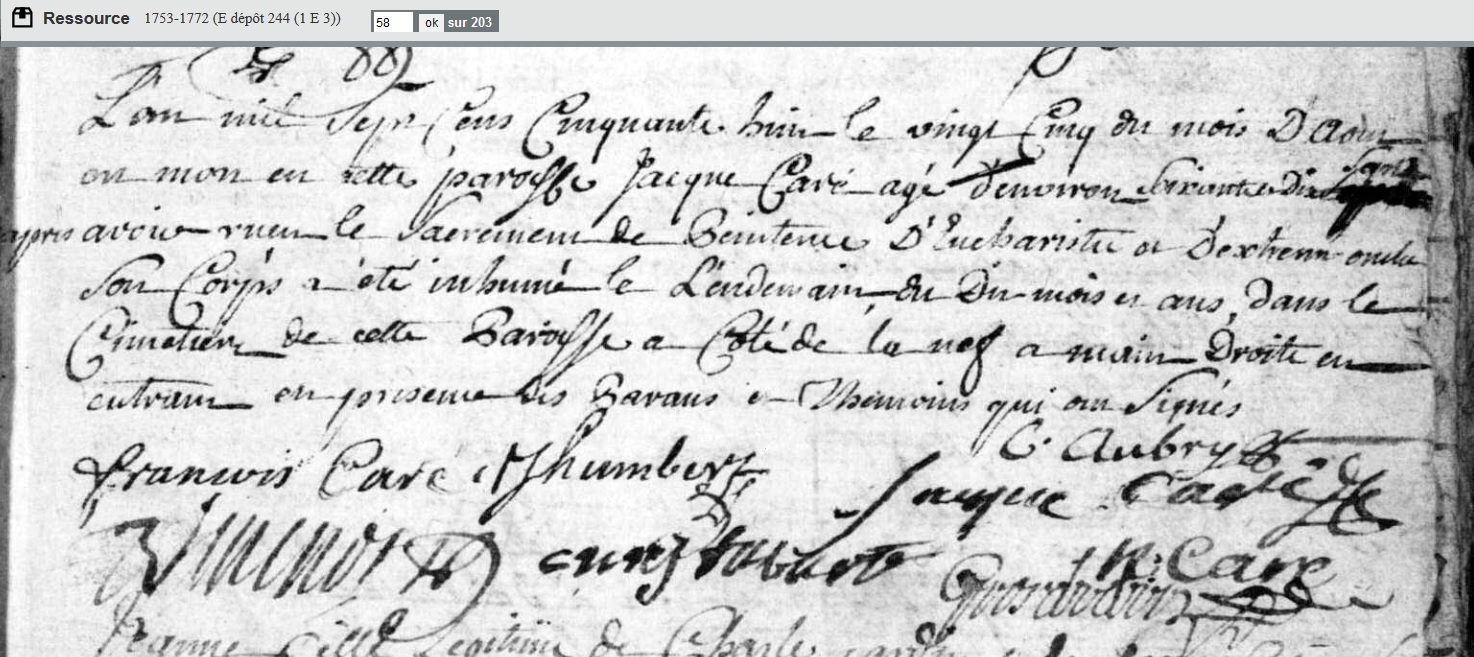 Ressource 1753-1772 (E dépôt 244 (1 E 3)) 58 ok sur 203
L'an mil Sept Cens Cinquante huit le vingt Cinq du mois D'Aout
est mort en cette paroisse Jacque Caré agé D'environ Soixante Dix ans
apres avoir reçu le Sacrement de Penitence D'Eucharistie et D'extreme onction
Son Corps a été inhumé le Lendemain du Dit mois et ans, dans le
Cimetiere de cette Paroisse a Coté de la nef a main Droite en
entrant en presence des Parans et Themoins qui ont Signés
C. Aubry
francois Caré Humbert
Jacque Caré
N. Caré
Jeanne fille Legitime de Charle